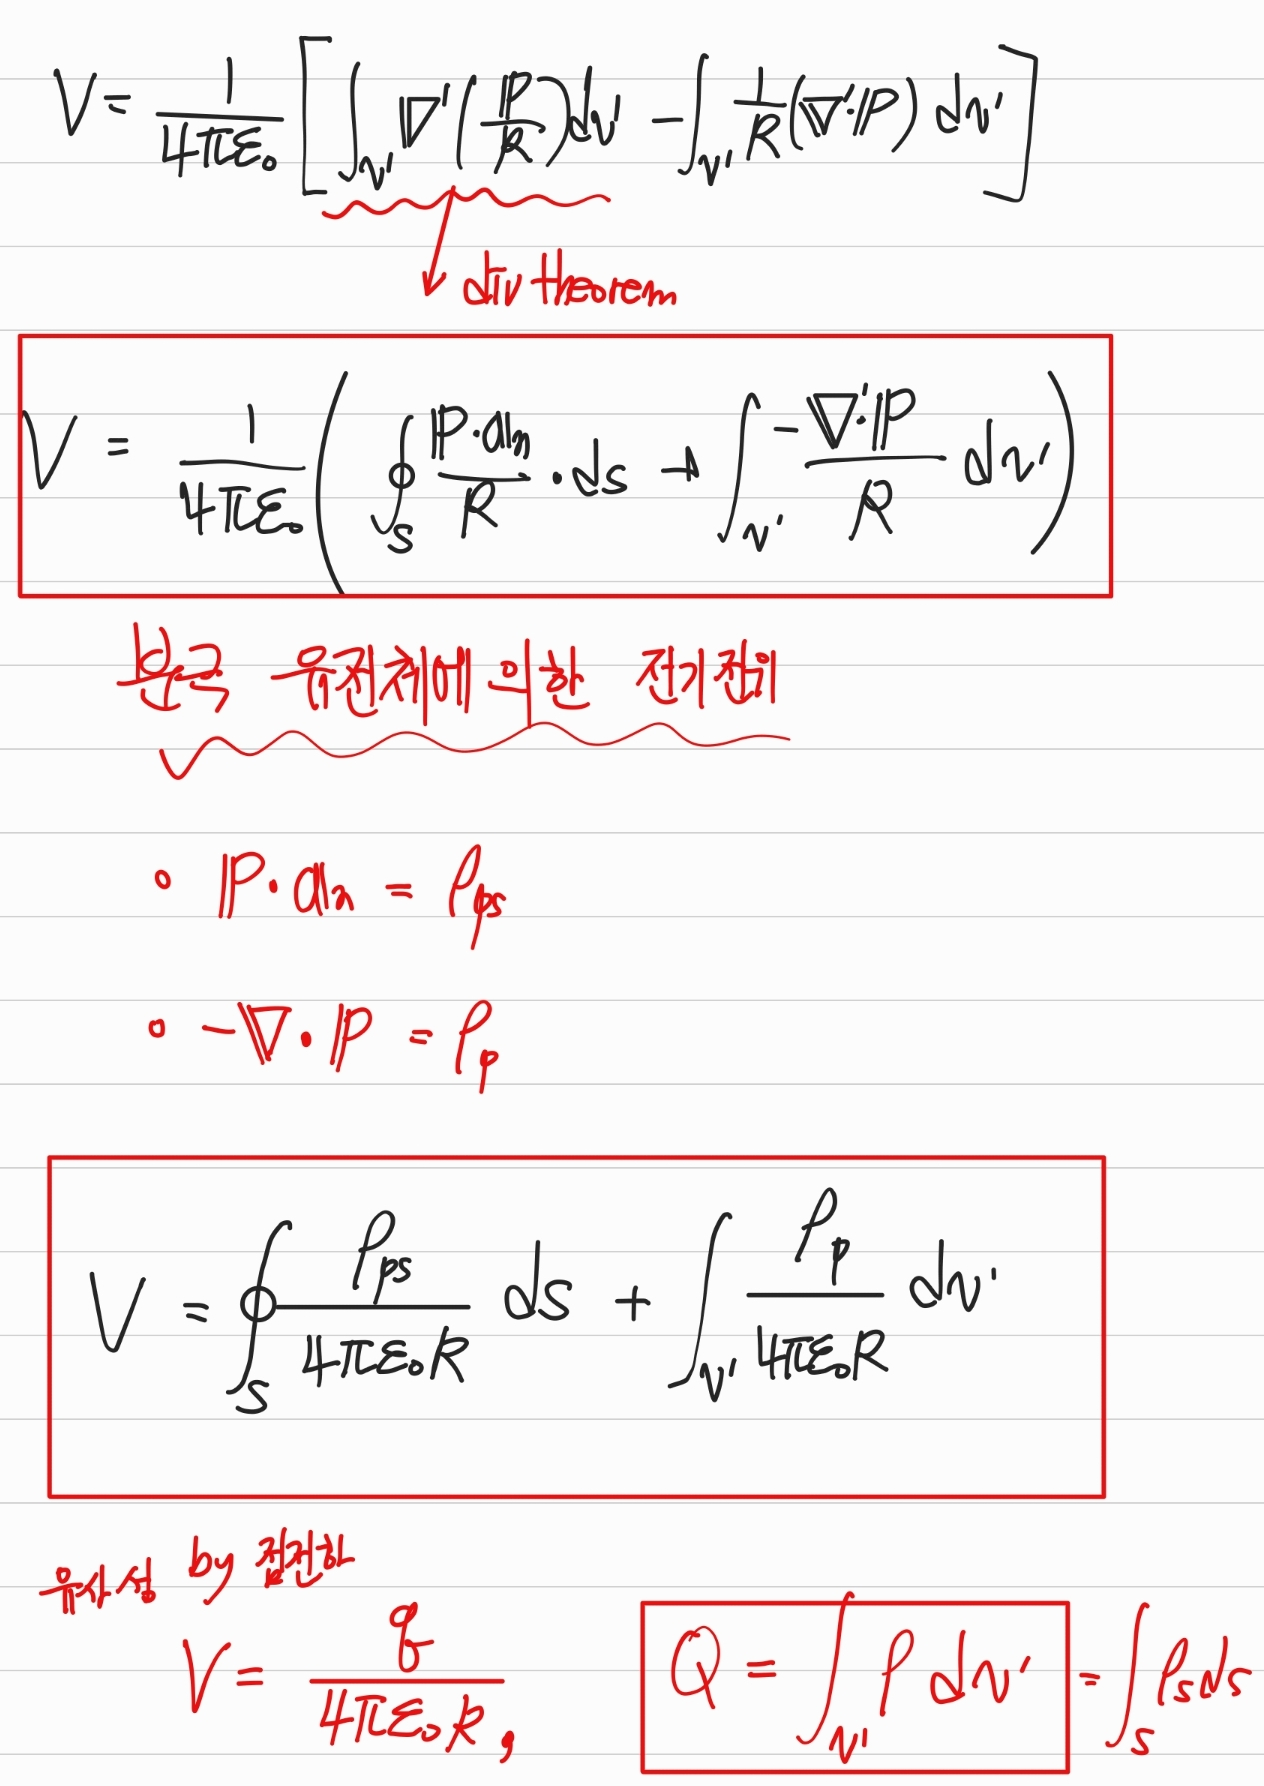 V = 1/4πε₀ [ ∫_v' ∇'(ℙ/R)dv' - ∫_v' 1/R(∇'·ℙ) dv' ]
div theorem
V = 1/4πε₀ ( ∮_S ℙ·𝕒n/R · ds + ∫_v' -∇'·ℙ/R dv' )
분극 유전체에 의한 전기전위
∘ ℙ·𝕒n = ρps
∘ -∇·ℙ = ρp
V = ∮_S ρps/4πε₀R ds + ∫_v' ρp/4πε₀R dv'
유사성 by 점전하
V = q/4πε₀R, Q = ∫_v' ρ dv' = ∫_S ρs ds